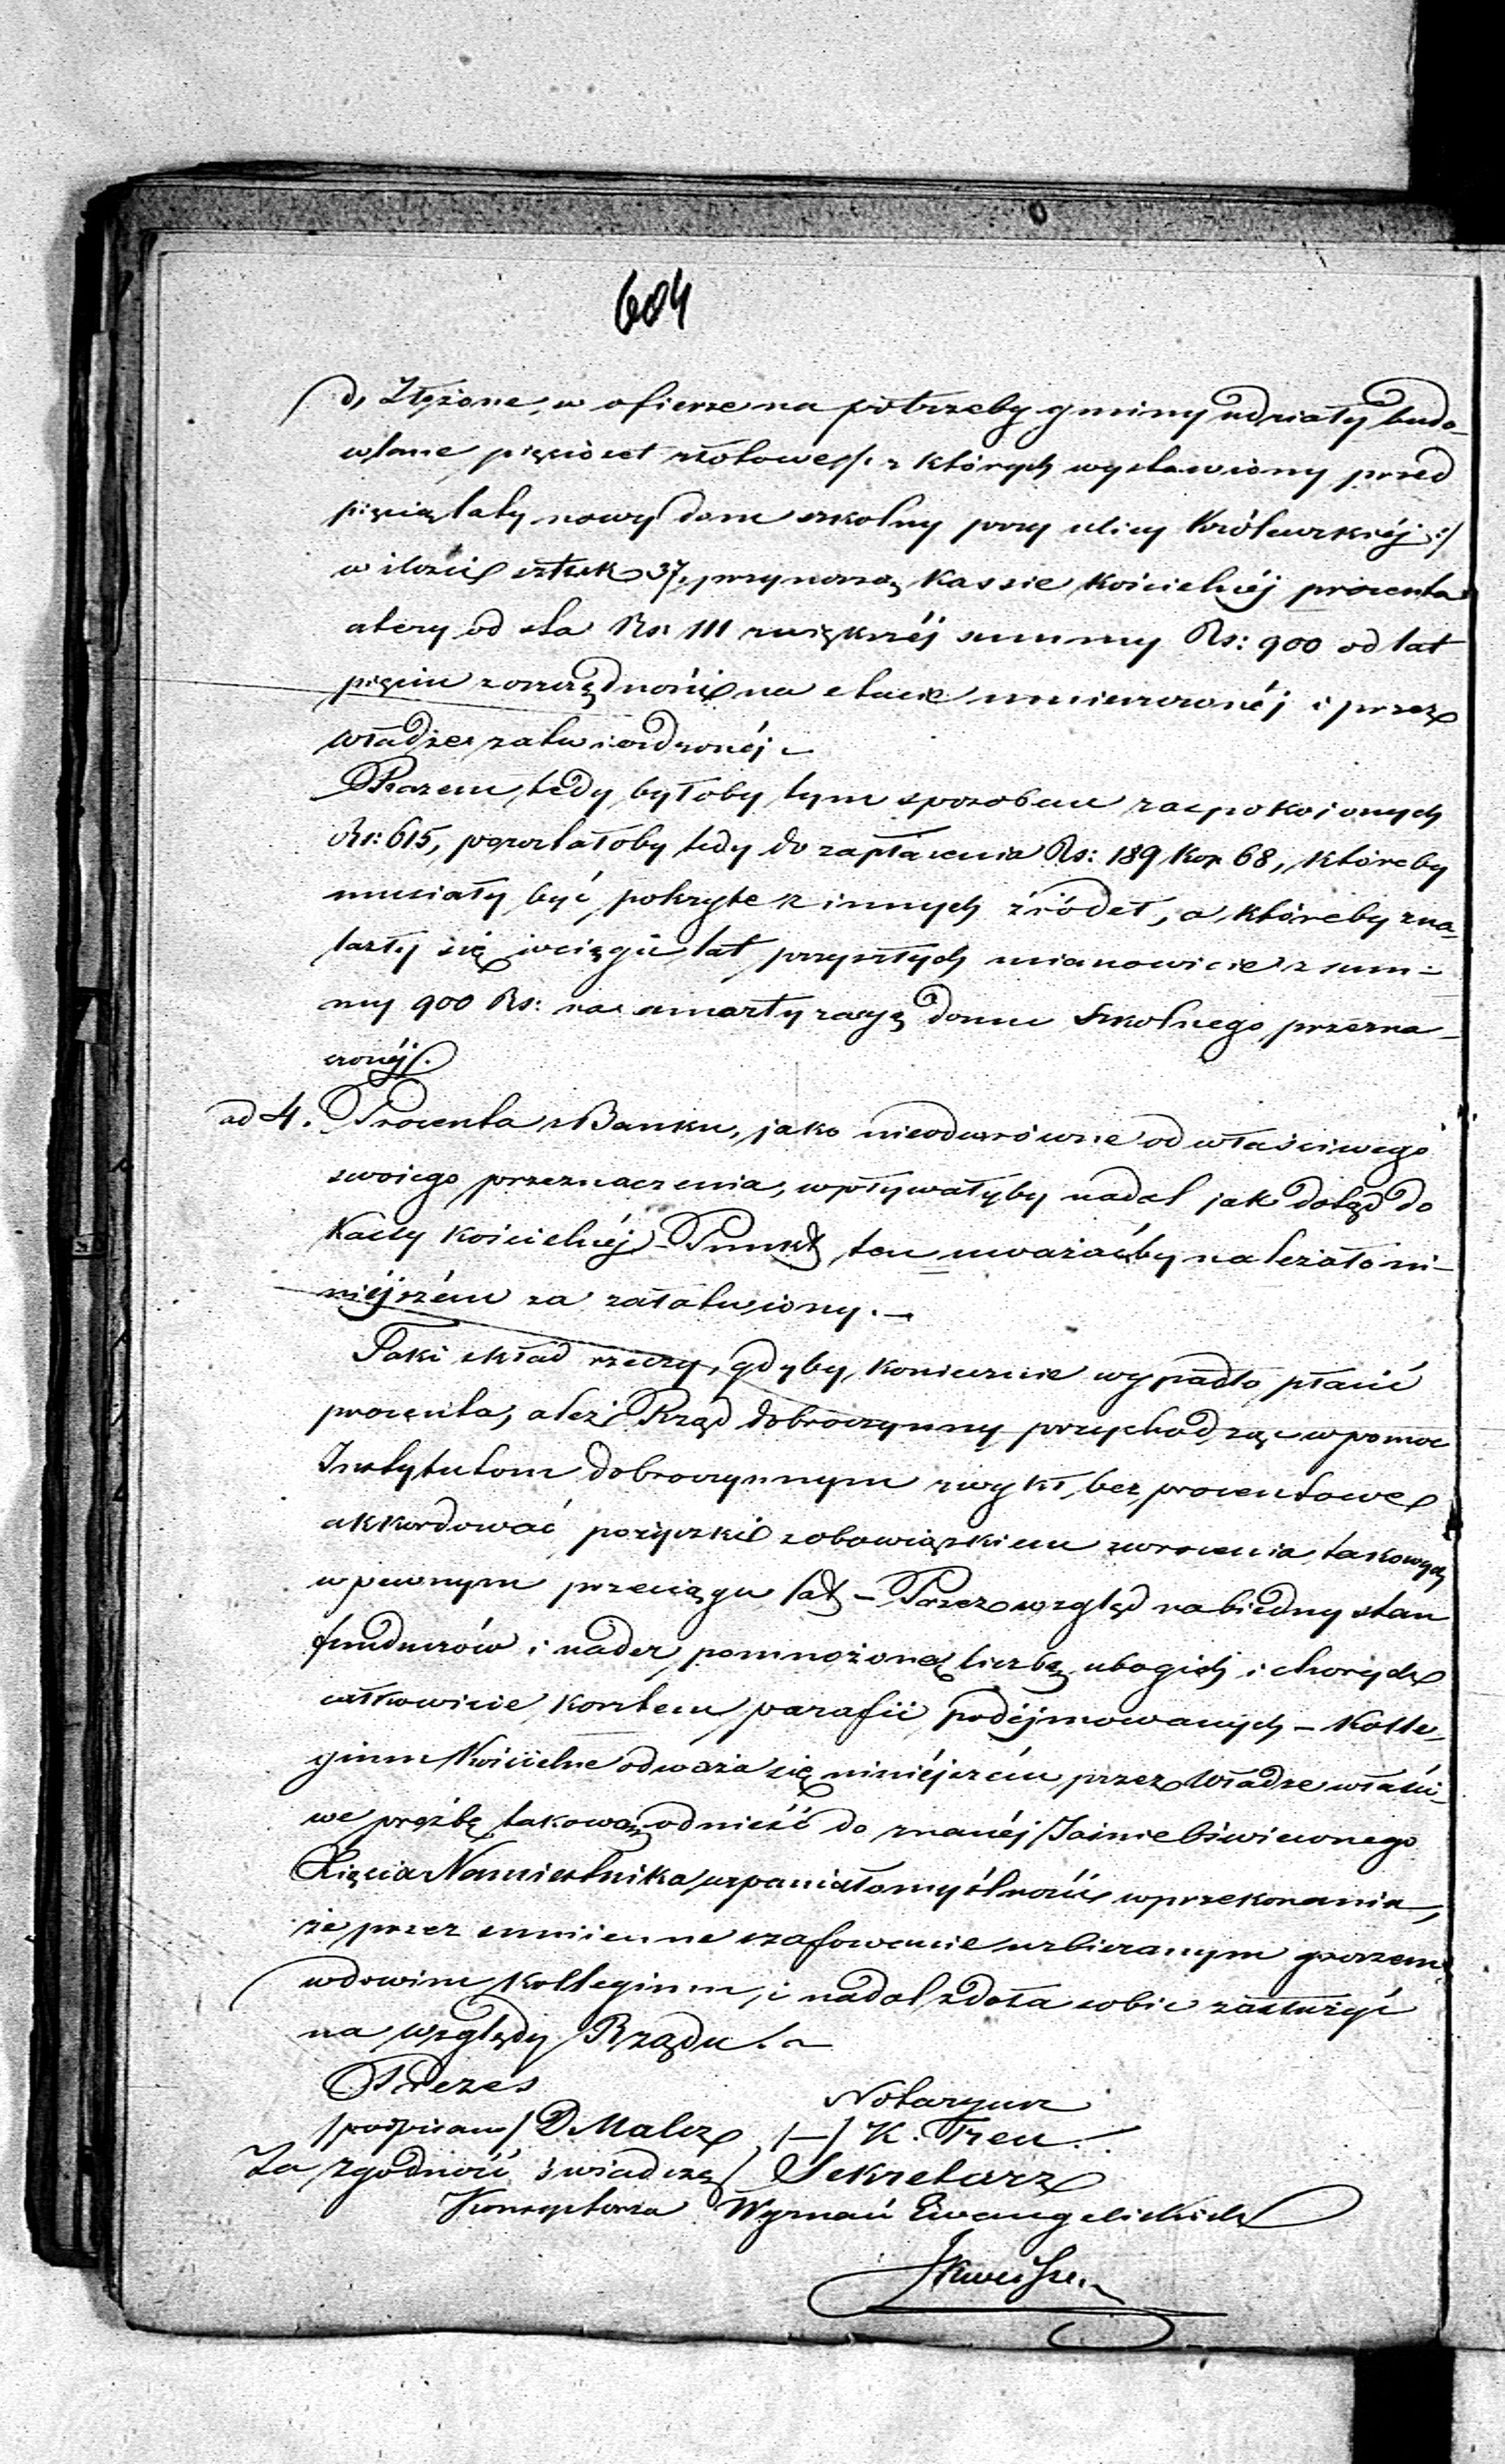 604
d, Złożone, w ofierze na potrzeby gminy udziały budo-
wlane pięćset złotowe /: z których wystawiony przed
pięcią laty nowy dom szkolny przy ulicy Królewskiéj :/
w ilości sztuk 37, przynoszą Kassie Kościelnéj procenta
cztery od sta Rs: 111 zwiększéj summy Rs: 900 od lat
pięciu z oszczędności na etacie umieszczonéj i przez
Władze zatwierdzonéj
Razem tedy byłoby tym sposobem zaspokoionych
Rs: 615, pozostałoby tedy do zapłacenia Rs: 189 kop 68, któreby
musiały być pokryte z innych źródeł, a któreby zna-
lazły się wciągu lat przyszłych mianowicie z sum-
my 900 Rs: na amortyzacyą domu Szkolnego przezna-
czonéj.
ad 4. Procenta z Banku, jako nieodzowne od właściwego
swoiego przeznaczenia, wpływałyby nadal jak dotąd do
Kassy Kościelnéj - Punkt ten uważaćby należało ni-
niéjszém za załatwiony. -
Taki skład rzeczy, gdyby koniecznie wypadło płacić
procenta, a leż Rząd dobroczynny przychodząc w pomoc
Instytutom dobroczynnym zwykł bez procentowe
akkordować pożyczki z obowiązkiem zwrócenia takowych
w pewnym przeciągu lat - Przez wzgląd na biedny stan
funduszów i nader pomnożoną liczbę ubogich i chorych
całkowicie kosztem parafii podéjmowanych - Kolle-
gium Kościelne odważa się niniéjszém przez Władze właści-
we prośbę takową odnieść do znanéj Jaśnie Oświeconego
Xięcia Namiestnika wspaniałomyślności w przekonaniu,
że przez sumienne szafowanie uzbieranym groszem
wdowim Kollegium, i nadal zdoła sobie zasłużyć
na względy Rządu. -
Prezes Notaryusz
/podpisano/ D. Malcz /-/ K. Treu.
Za zgodność świadczę Sekretarz
Konsystorza Wyznań Ewangelickich